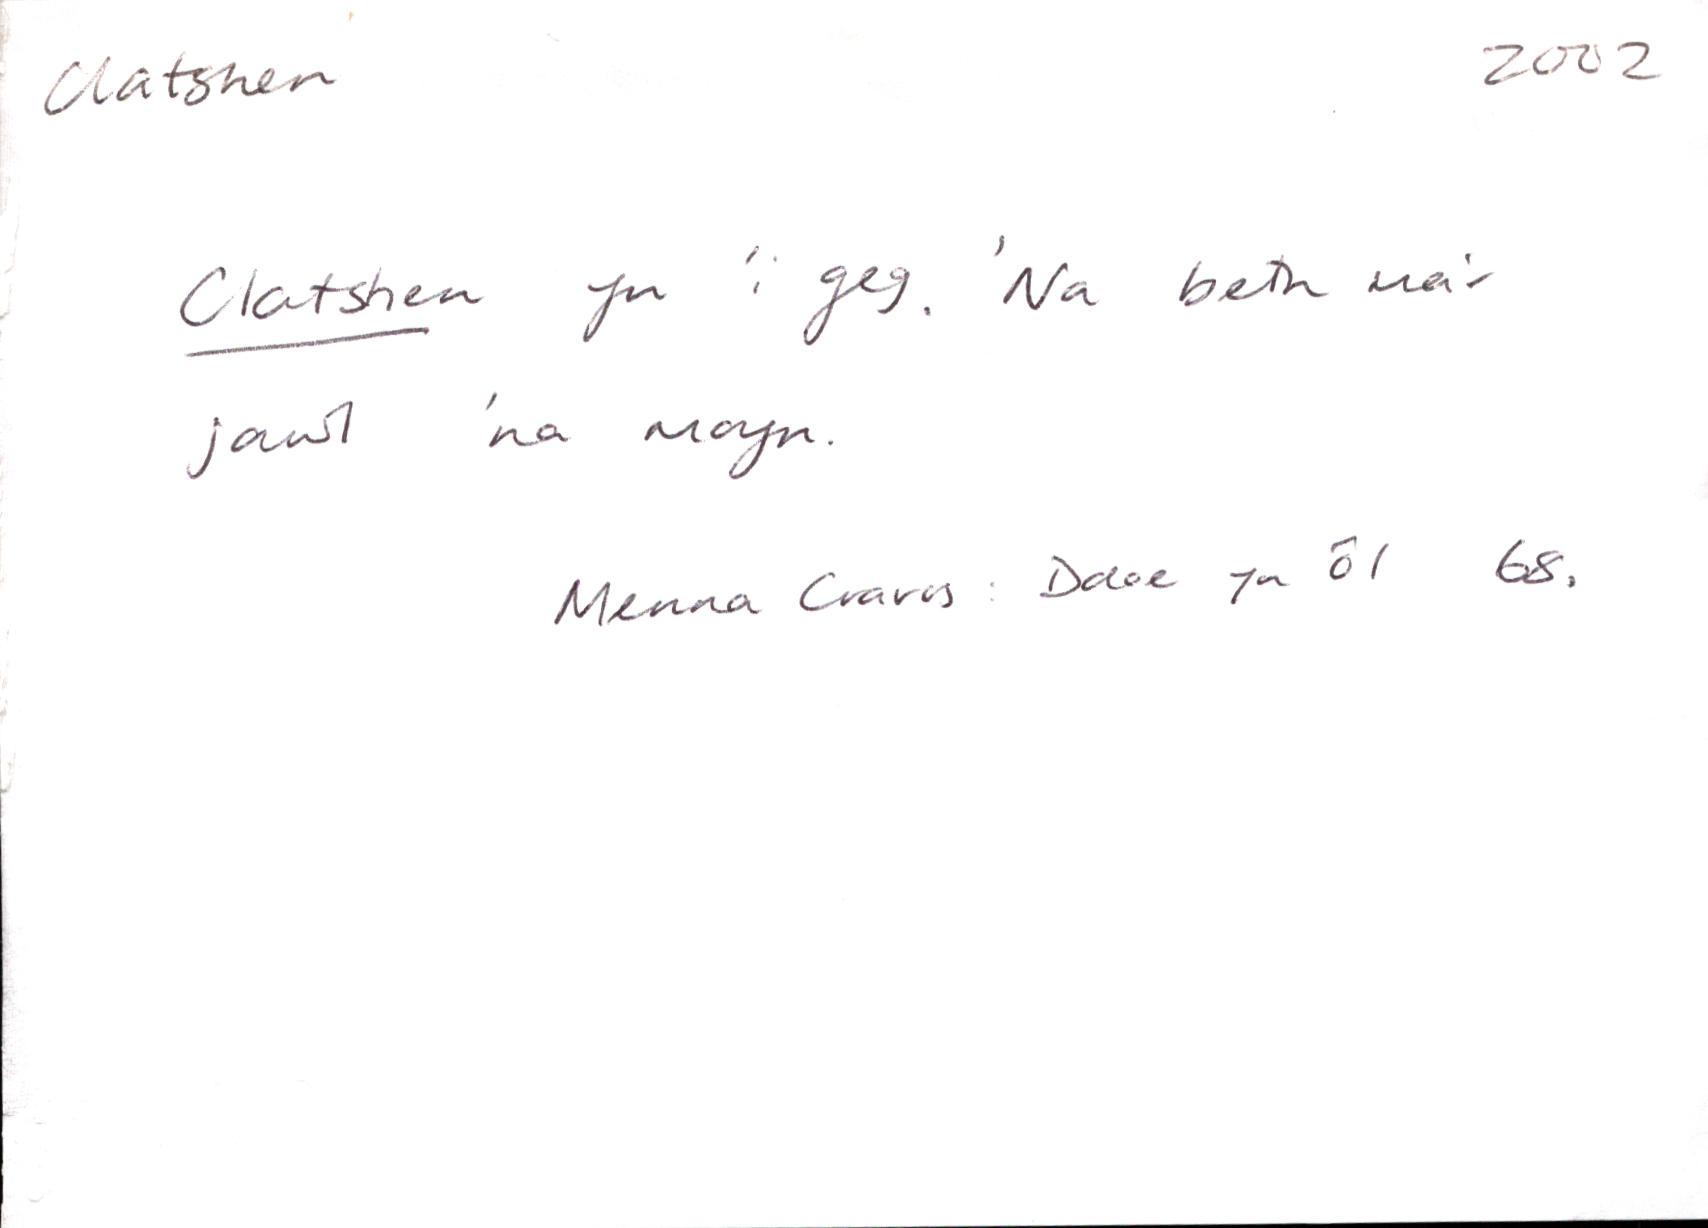 Clatshen 2002
Clatshen yn 'i geg. 'Na beth ma'r
jawl 'na moyn.
Menna Cravos: Ddoe yn ôl 68.